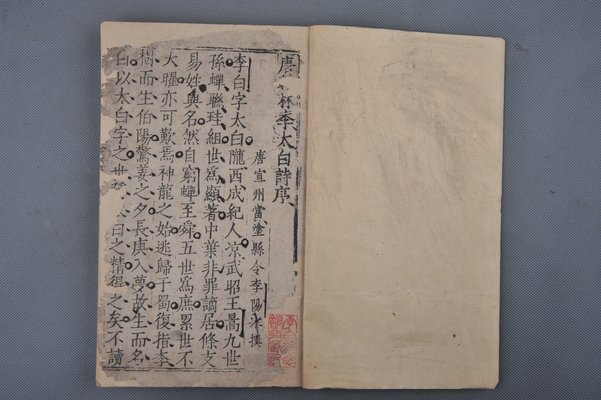 唐 林李太白詩序
唐宣州當塗縣令李陽冰撰
李白字太白隴西成紀人涼武昭王暠九世
孫蟬聯珪組世爲顯著中葉非罪謫居條支
易姓與名然自窮蟬至舜五世爲庶累世不
大曜亦可歎焉神龍之始逃歸于蜀復指李
樹而生伯陽驚姜之夕長庚入夢故生而名
白以太白字之世稱太白之精得之矣不讀